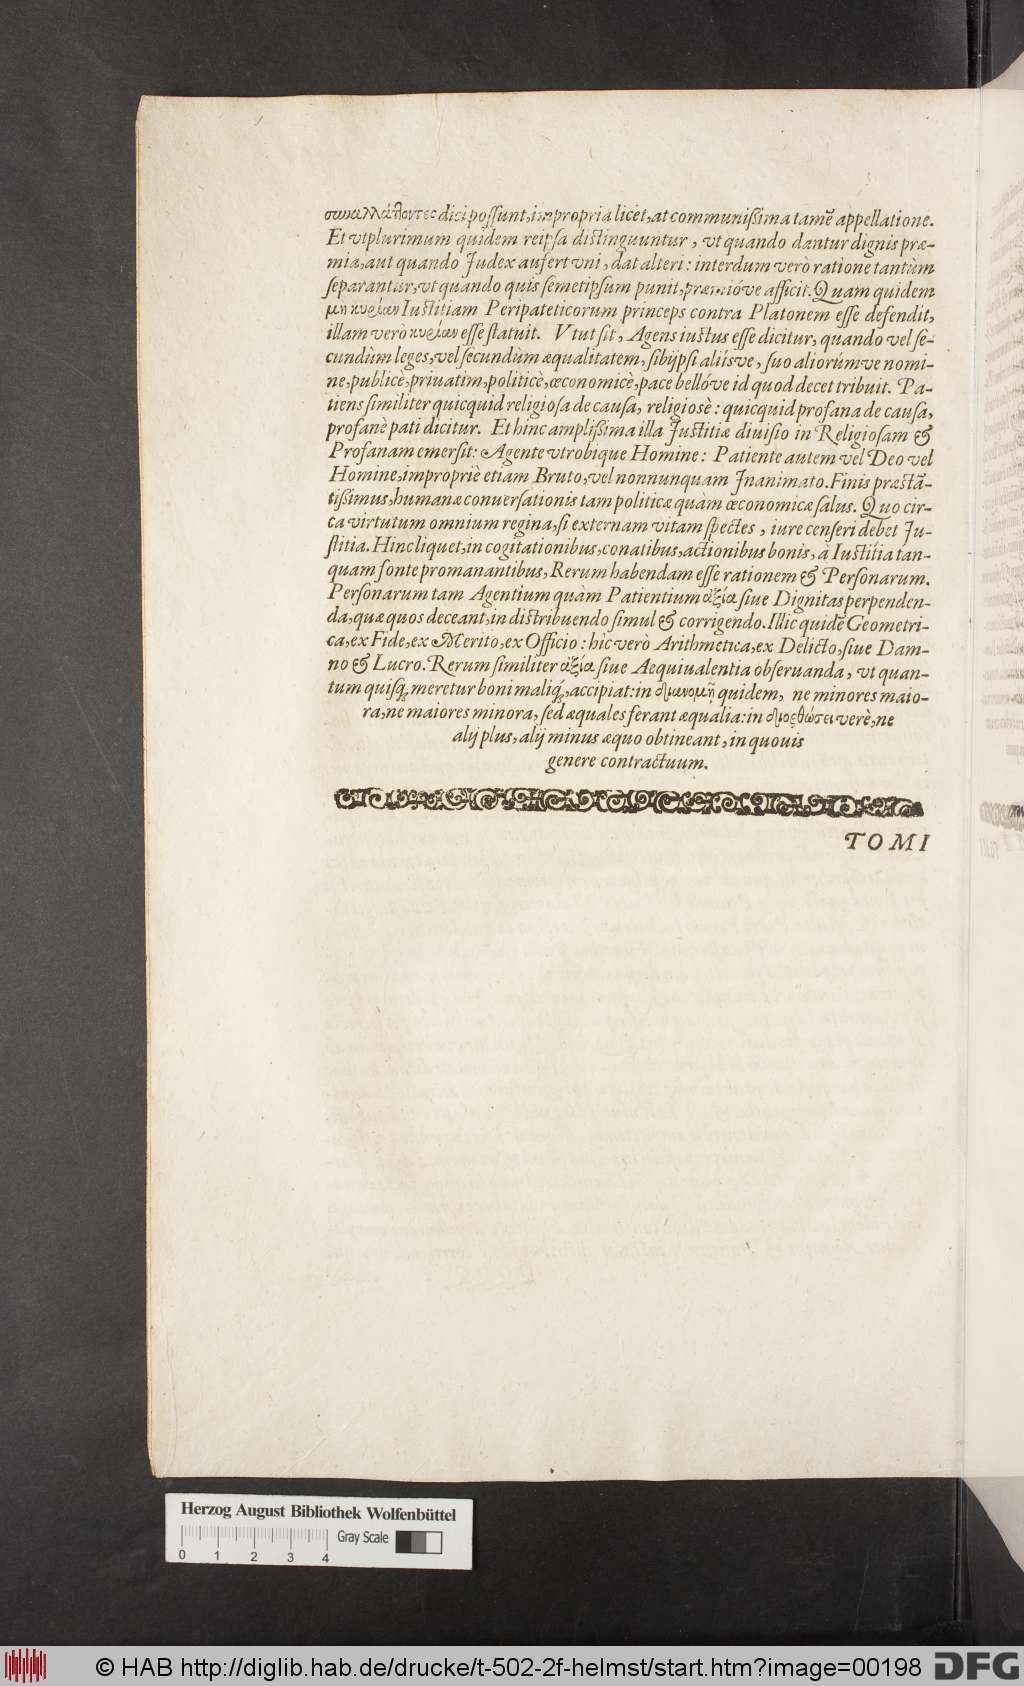 συναλλάτοντες dici possunt, impropria licet, at communißima tamẽ appellatione.
Et vt plurimum quidem reipsa distinguuntur, vt quando dantur dignis præ-
mia, aut quando Judex aufert vni, dat alteri: interdum verò ratione tantùm
separantur, vt quando quis semetipsum punit, præmióve afficit. Quam quidem
μὴ κυρίαν Iustitiam Peripateticorum princeps contra Platonem esse defendit,
illam verò κυρίαν esse statuit. Vt ut sit, Agens iustus esse dicitur, quando vel se-
cundùm leges, vel secundùm æqualitatem, sibijpsi aliísve, suo aliorúmve nomi-
ne, publicè, priuatim, politicè, œconomicè, pace bellóve id quod decet tribuit. Pa-
tiens similiter quicquid religiosa de causa, religiosè: quicquid profana de causa,
profanè pati dicitur. Et hinc amplißima illa Justitiæ diuisio in Religiosam &
Profanam emersit: Agente vtrobique Homine: Patiente autem vel Deo vel
Homine, impropriè etiam Bruto, vel nonnunquam Jnanimato. Finis præstã-
tißimus, humanæ conuersationis tam politicæ quàm œconomicæ salus. Quo cir-
ca virtutum omnium regina, si externam vitam spectes, iure censeri debet Ju-
stitia. Hinc liquet, in cogitationibus, conatibus, actionibus bonis, à Iustitia tan-
quam fonte promanantibus, Rerum habendam esse rationem & Personarum.
Personarum tam Agentium quàm Patientium ἀξία siue Dignitas perpenden-
da, quæ quos deceant, in distribuendo simul & corrigendo. Illic quidẽ Geometri-
ca, ex Fide, ex Merito, ex Officio: hîc verò Arithmetica, ex Delicto, siue Dam-
no & Lucro. Rerum similiter ἀξία siue Aequiualentia obseruanda, vt quan-
tum quisq; meretur boni maliq;, accipiat: in διανομῇ quidem, ne minores maio-
ra, ne maiores minora, sed æquales ferant æqualia: in διορθώσει verè, ne
alij plus, alij minus æquo obtineant, in quouis
genere contractuum.
TOMI
Herzog August Bibliothek Wolfenbüttel
Gray Scale
0 1 2 3 4
© HAB http://diglib.hab.de/drucke/t-502-2f-helmst/start.htm?image=00198 DFG